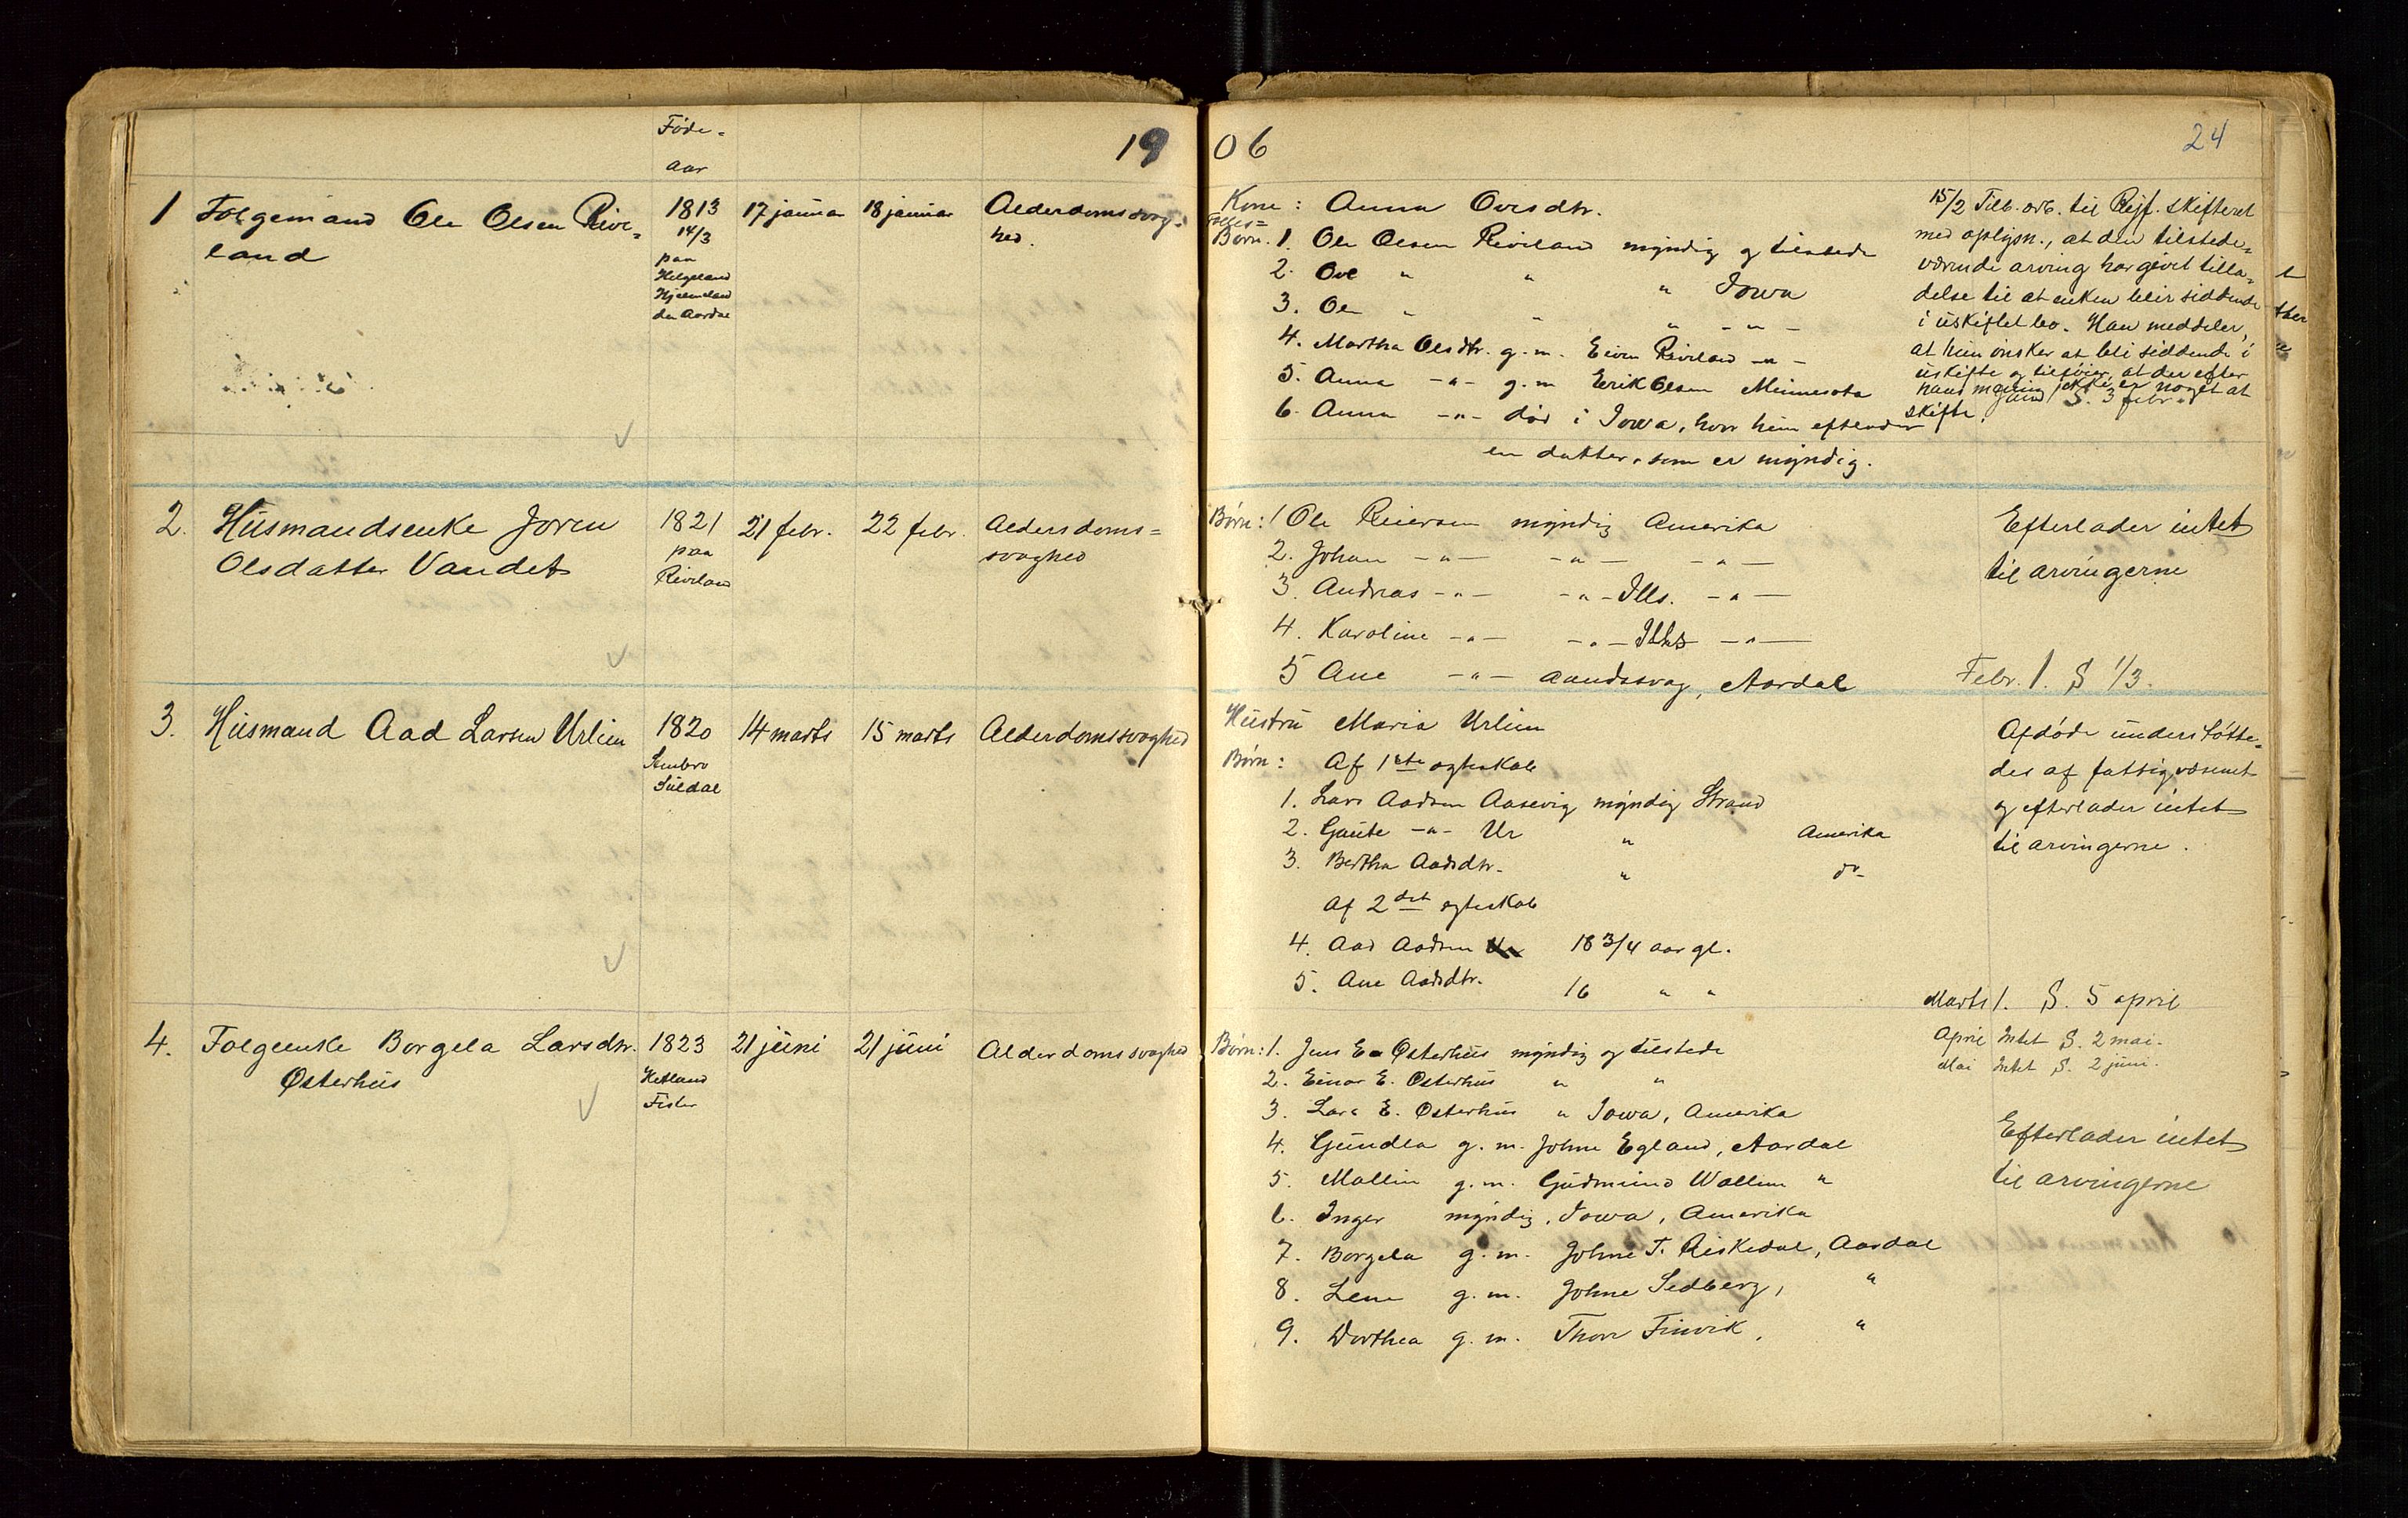 Føde-
aar
19 06
24
1 Folgemand Ole Olsen Rive-
land
1813
14/3
paa
Helgeland
Hjelmeland
du Aardal
17 januar
18 januar
Alderdomssvag-
hed.
Kone: Anna Ovesdtr.
Fælles-
Børn. 1. Ole Olsen Riveland myndig og tilstede
2. Ove " " " Iowa
3. Ole " " " - " -
4. Martha Olsdtr. g. m. Eiven Riveland - " -
5. Anna - " - g. m Eerik Olsen Minnesota
6. Anna - " - død i Iowa, hvor hun efterlader
en datter, som er myndig.
15/2 Tilb. orb. til Rejf. skifteret
med oplysn., at den tilstede-
værende arving har givet tilla-
delse til at enken blir siddende
i uskiftet bo. Han meddeler,
at hun ønsker at bli siddende i
uskifte og tilføier, at der efter
hans mening ikke er noget at
skifte.
S. 3 febr.
2. Husmandsenke Joren
Olsdatter Vandet
1821
paa
Riveland
21 febr.
22 febr.
Aldersdoms=
svaghed
Børn: 1 Ole Reiersen myndig Amerika
2. Johan - " - - " - - " -
3. Andreas - " - - " - Ills. - " -
4. Karoline - " - - " - Ills - " -
5 Ane - " - aandssvag, Aardal
Efterlader intet
til arvingerne
Febr. 1. S 1/3.
3. Husmand Aad Larsen Urlien
1820
Stenbro
Suldal
14 marts
15 marts
Alderdomssvaghed
Hustru Maria Urlien
Børn: Af 1ste egteskab
1. Lars Aadsen Aasevig myndig Strand
2. Gaute - " - Ur " Amerika
3. Bertha Aadsdtr. " do
Af 2det egteskab
4. Aad Aadsen 18 3/4 aar gl.
5. Ane Aadsdtr. 16 " "
Afdøde understøtte-
des af fattigvæsenet
og efterlader intet
til arvingerne.
Marts 1. S. 5 april
April Intet S. 2 mai.
Mai Intet S. 2 juni.
4. Folgeenke Borgela Larsdtr.
Østerhus
1823
Hetland
Fister
21 juni
21 juni
Alderdomssvaghed
Børn: 1. Jens E Østerhus myndig og tilstede
2. Einar E. Østerhus " "
3. Lars E. Østerhus " Iowa, Amerika
4. Gundla g. m. Johne Egland, Aardal
5. Mallin g. m. Gudmund Wallem "
6. Inger myndig, Iowa, Amerika
7. Borgela g. m. Johne T. Riskedal, Aardal
8. Lene g. m. Johne Sedberg, "
9. Dorthea g. m. Thore Finvik, "
Efterlader intet
til arvingerne